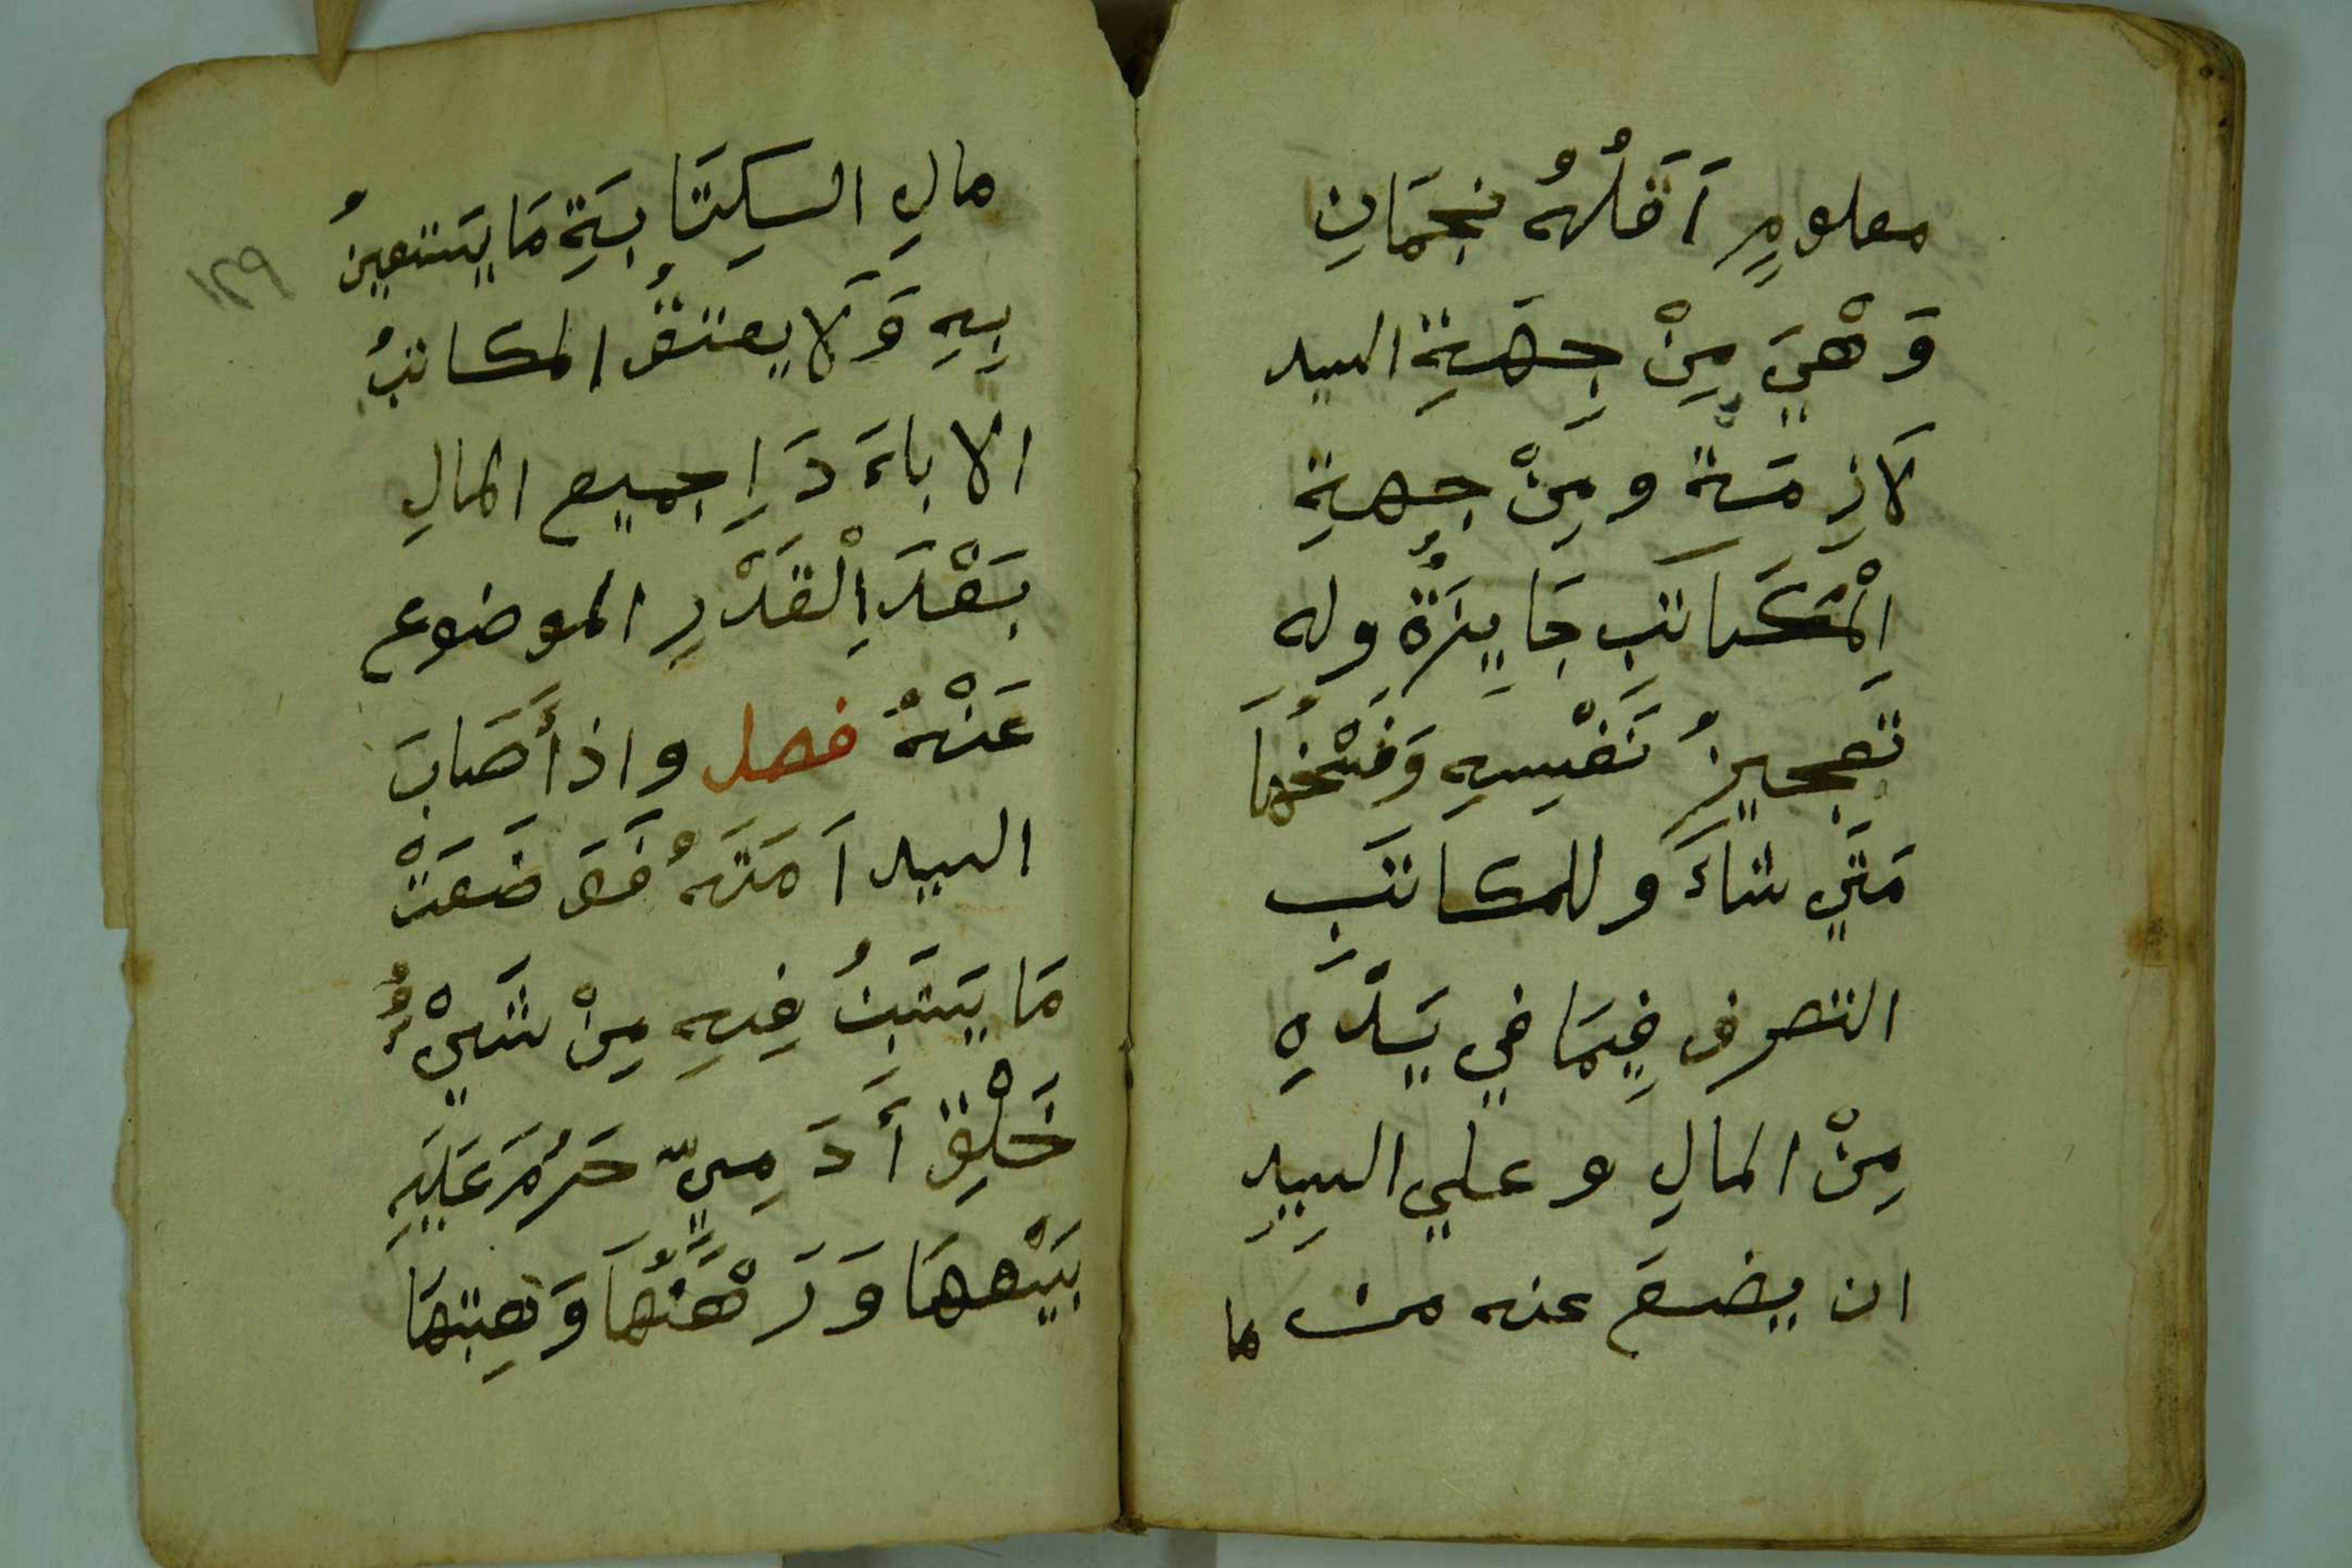 معلومٍ اَقَلُهُ نجمَانِ
وَهْيَ مِنْ جِهَةِ السيد
لَازِمَة ومِنْ جِهةِ
اِلْمُكَاتَبِ جَايِزَةٌ وله
تَعجيزُ نَفْسِهِ وَفَسْخُهَا
مَتَي شاءَ وللمكاتَبِ
التصرف فِيمَا في يَدْهِ
مِنْ المالِ وعلي السيِدِ
ان يضعَ عنه من ما
مالِ الكِتَابَةِ مَا يَستعينُ
بِهِ وَلَا يعتقُ المكاتبُ
الا باءَدَاِ جميع المالِ
بَعْدَ اِلْقَدْرِ الموضوع
عَنْهُ فصل واذأَصَابَ
السيد اَمَتَهُ فَوَضَعَتْ
مَا يَتَبَنُ فِيهِ مِنْ شَيْءٌ
خَلْقِ أَدَمِيّ حَرُمَ عَلَيهِ
بَيْعهَا وَرَهْنُهَا وَهِبتهَا
١٢٩